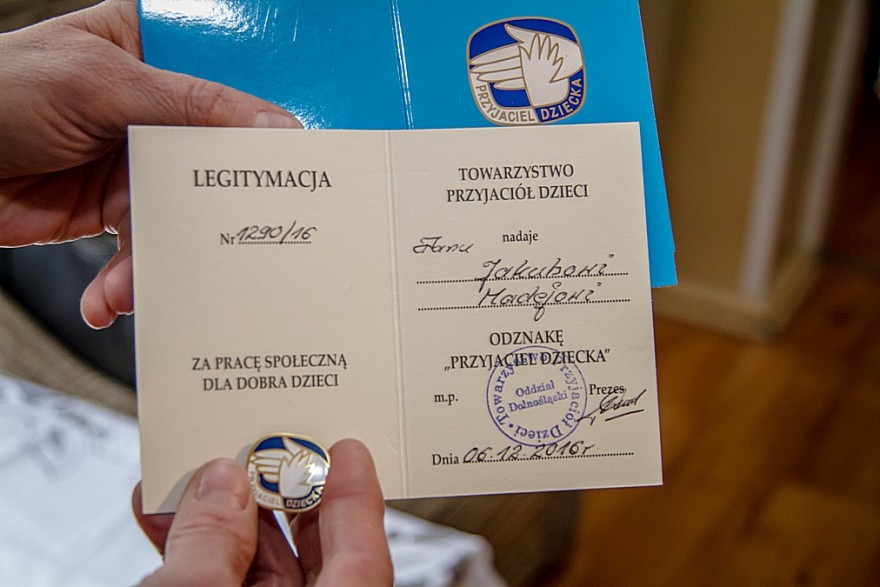 PRZYJACIEL DZIECKA
LEGITYMACJA
Nr 1290/16
ZA PRACĘ SPOŁECZNĄ
DLA DOBRA DZIECI
TOWARZYSTWO
PRZYJACIÓŁ DZIECI
nadaje
Panu
Jakubowi
Madejowi
ODZNAKĘ
„PRZYJACIEL DZIECKA”
m.p.
Prezes
Towarzystwo Przyjaciół Dzieci
Oddział
Dolnośląski
Dnia 06.12.2016r.
PRZYJACIEL DZIECKA